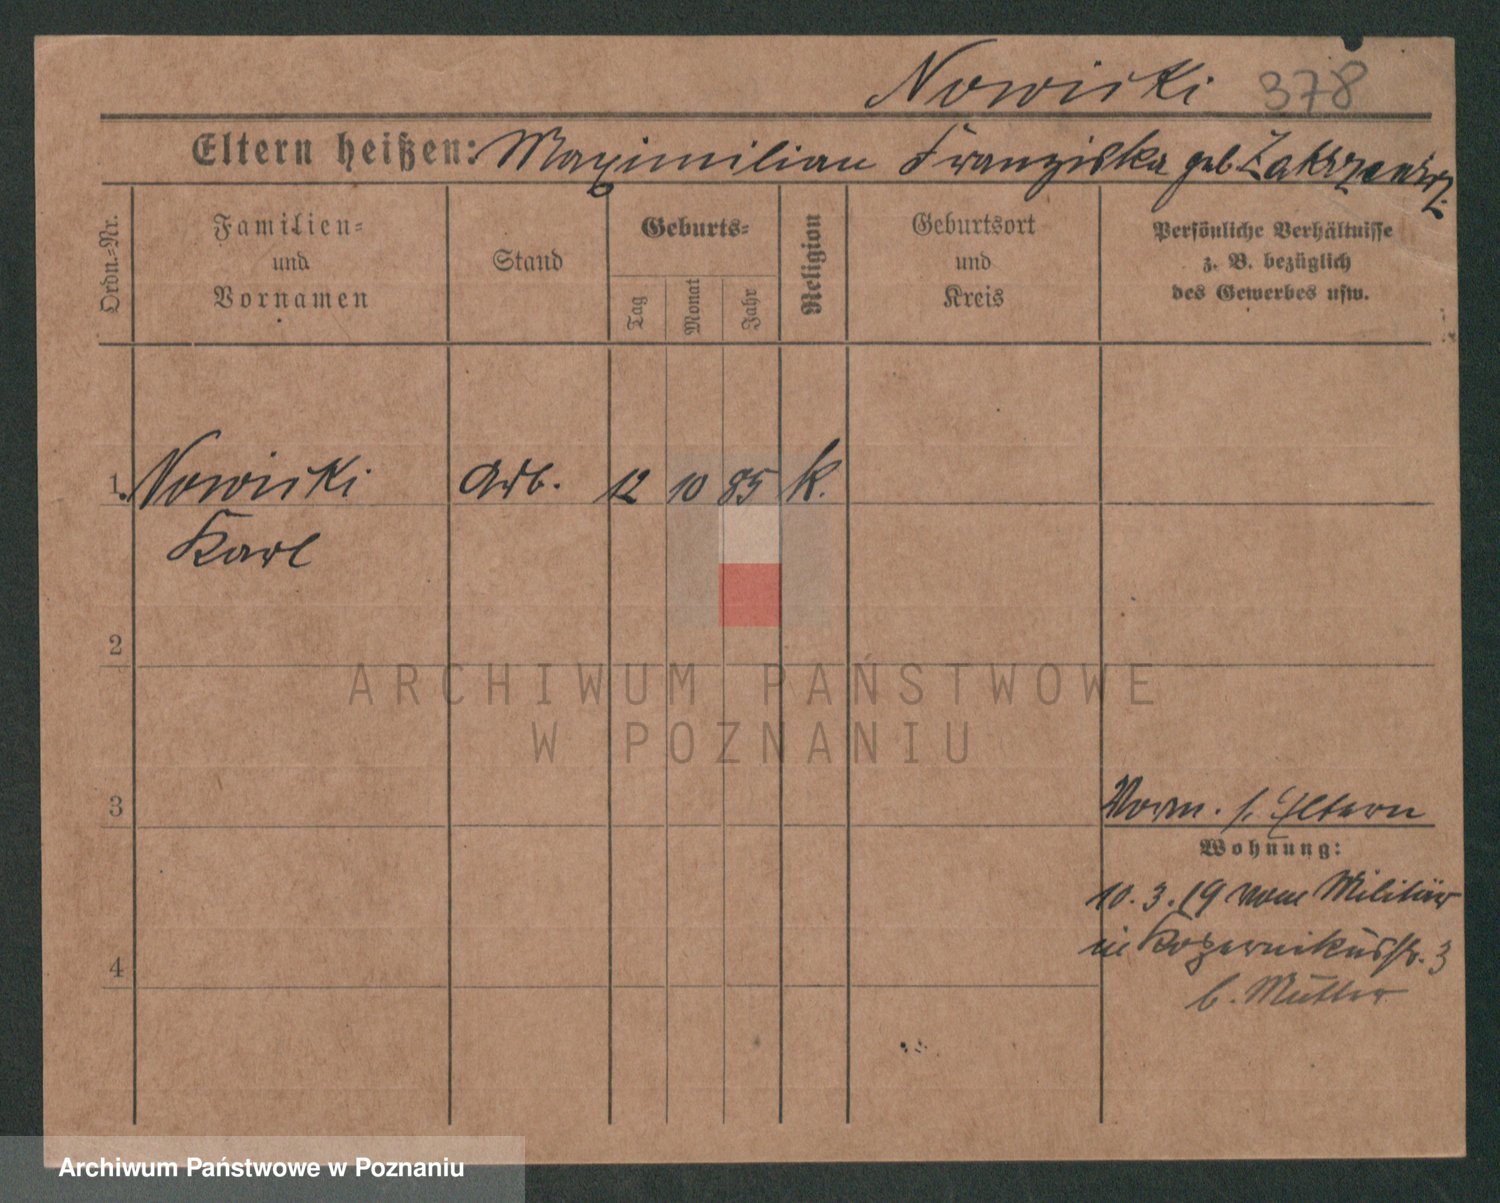 Nowicki 378
Eltern heißen: Maximilian Franziska geb.
Ordn.-Nr.
Familien-
und
Vornamen
Stand
Geburts-
Tag
Monat
Jahr
Religion
Geburtsort
und
Kreis
Persönliche Verhältnisse
z. B. bezüglich
des Gewerbes usw.
1. Nowicki Arb. 12 10 85 k.
Karl
2
ARCHIWUM PAŃSTWOWE
W POZNANIU
3
Vorm. s. Eltern
Wohnung:
10.3.19 vom Militär
in Kopernikusstr. 3
4
b. Mutter
Archiwum Państwowe w Poznaniu